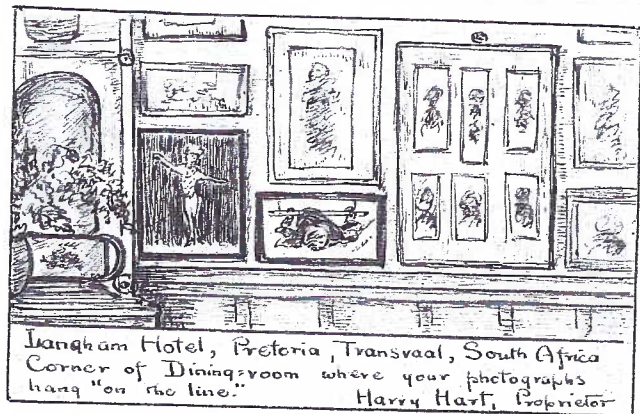 Langham Hotel, Pretoria, Transvaal, South Africa
Corner of Dining=room where your photographs
hang "on the line."
Harry Hart, Proprietor